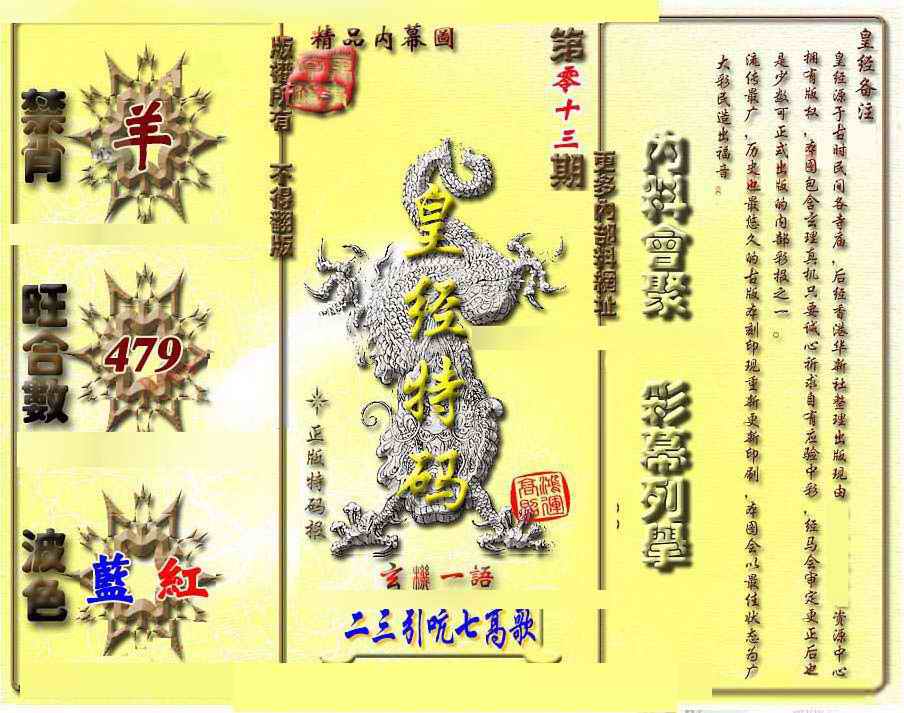 皇经备注
皇经源于古时民间各寺庙，后经香港华新社整理出版现由
资源中心
拥有版权，本图包含玄理真机只要诚心祈求自有应验中彩，经马会审定更正后也
是少数可正式出版的内部彩报之一。
流传最广，历史也最悠久的古版本刻印现重新更新印刷，本图会以最佳状态为广
大彩民造出福音。
內料會聚
彩幕列舉
更多內部料網址
第零十三期
精品内幕圖
皇经特码
正版特码报
鴻運高照
玄機一語
二三引吭七高歌
版權所有 不得翻版
禁肖
羊
旺合數
479
波色
藍 紅